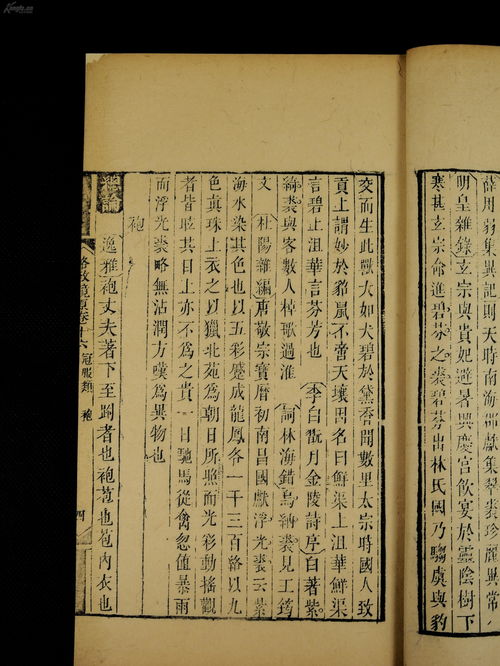 Kongfz.cn
薛用弱集異記則天時南海郡獻集翠裘珍麗異常
明皇雜錄玄宗與貴妃避暑興慶宮飲宴於靈陰樹下
寒甚玄宗命進碧芬之裘碧芬出林氏國乃騶虞與豹
交而生此獸大如犬碧於黛香聞數里太宗時國人致
貢上謂妙於貂鼠不啻天壤因名曰鮮渠上沮華鮮渠
言碧上沮華言芬芳也 李白翫月金陵詩序白著紫
綺裘與客數人棹歌過淮 詞林海錯烏納裘見工筠
文 杜陽雜編唐敬宗寶曆初南昌國獻浮光裘云紫
海水染其色也以五彩蹙成龍鳳各一千三百絡以九
色真珠上衣之以獵北苑為朝日所照而光彩動搖觀
者皆眩其目上亦不為之貴一日馳馬從禽忽值暴雨
而浮光裘略無沾潤方嘆為異物也
袍
逸雅袍丈夫著下至跗者也袍苞也苞內衣也
格致鏡原卷十六 冠服類 袍 四